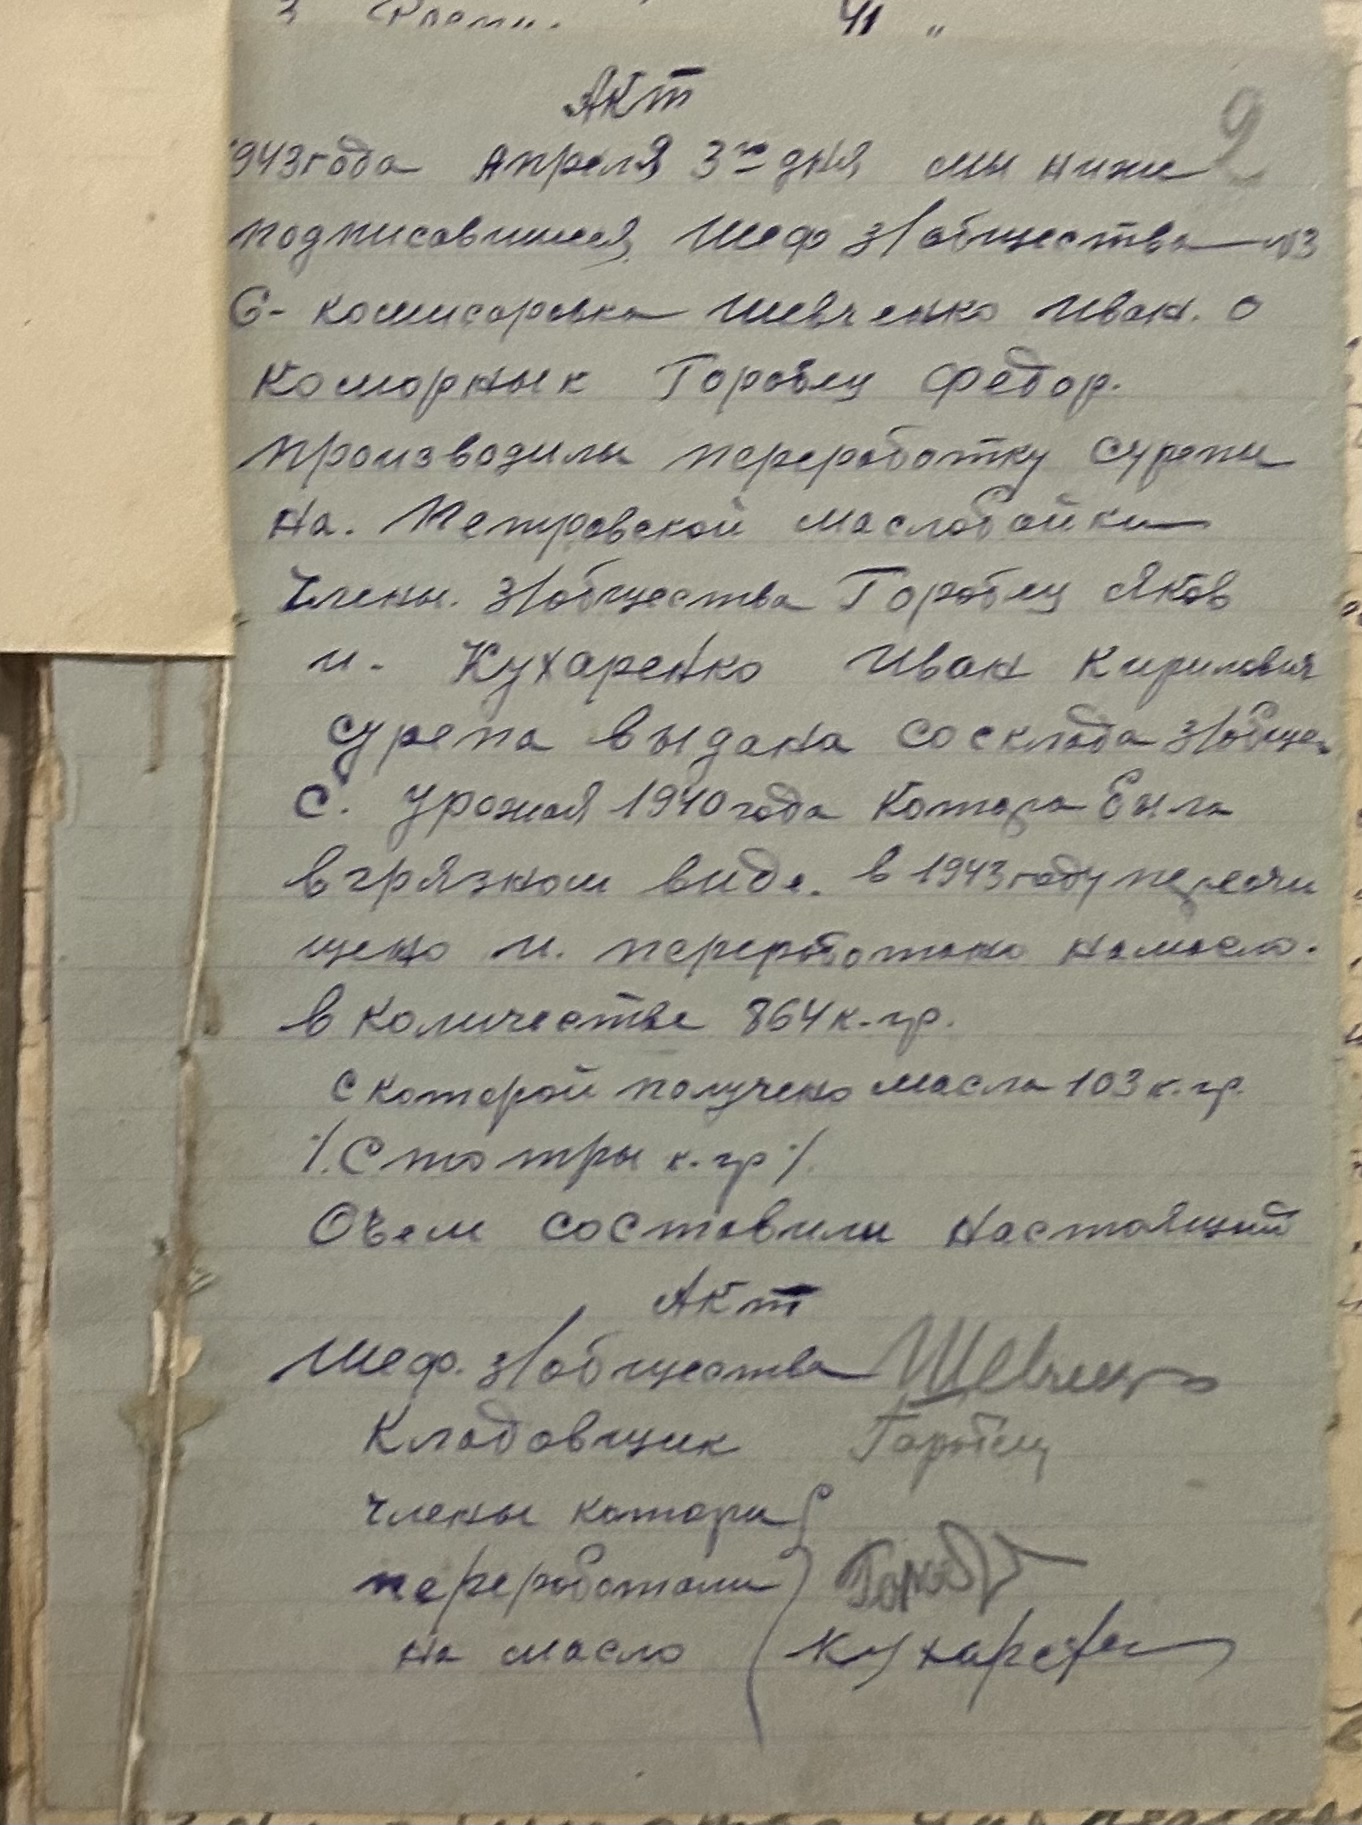 3 41 "
Акт
2
1943 года Апреля 3го дня мы ниже
подписавшиеся, Шеф з/общества №3
С- комисаровка Шевченко Иван. О
Коморнык Горобец Федор.
производили переработку сурепи
на. Петровской маслобойки
Члены. з/общества Горобец Яков
и. Кухаренко Иван Кирилович
Сурепа выдана со склада з/обще.
С. урожая 1940 года Котора была
в грязном виде. в 1943 году переочи
щено и. переработано на масло.
в количестве 864 к.-гр.
с которой получено масла 103 к.-гр.
/.Сто три к.-гр./.
Очем составили настоящий
Акт
Шеф. з/общества Шевченко
Кладовщик Горобец
Члены котори
переработали Гороб
на масло Кухаре